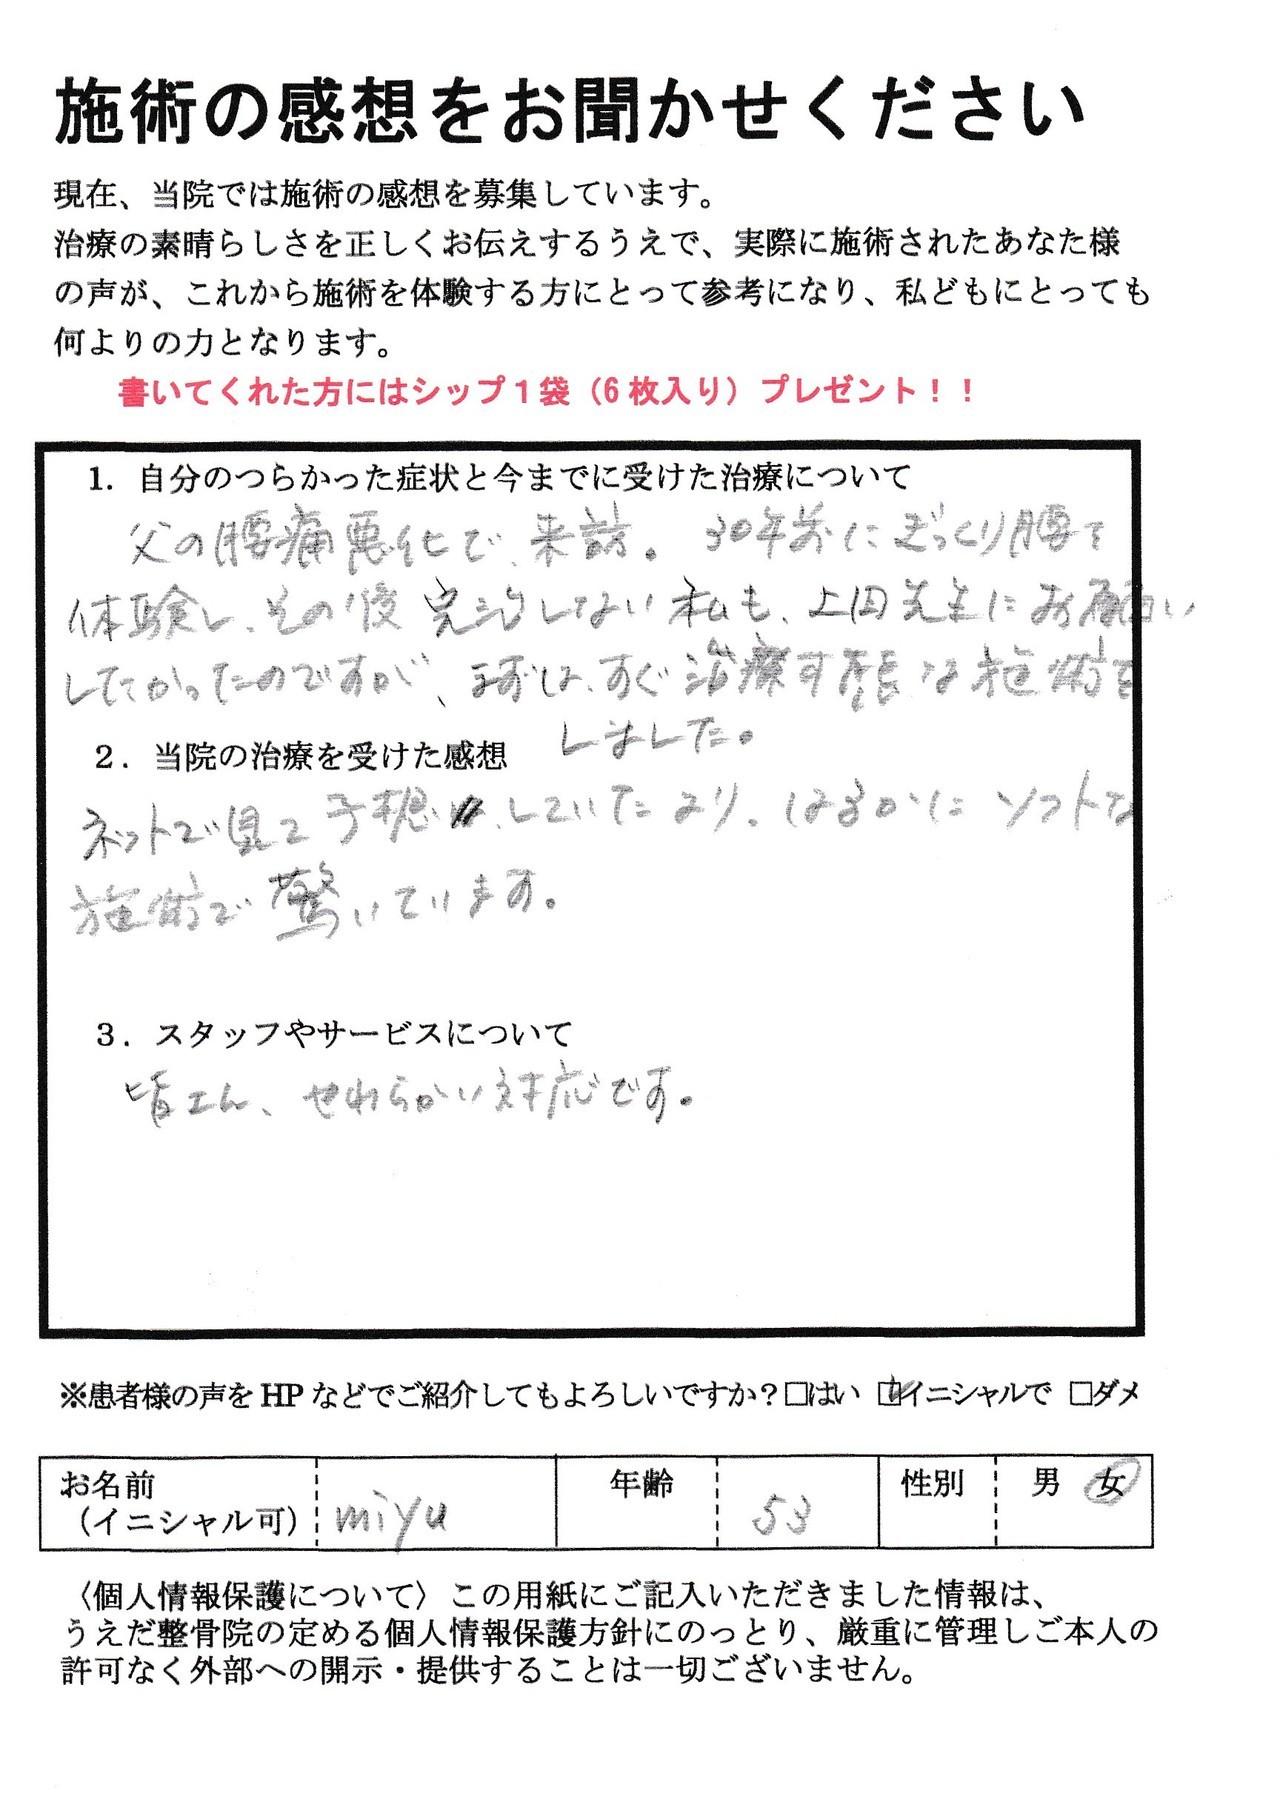 施術の感想をお聞かせください
現在、当院では施術の感想を募集しています。
治療の素晴らしさを正しくお伝えするうえで、実際に施術されたあなた様
の声が、これから施術を体験する方にとって参考になり、私どもにとっても
何よりの力となります。
書いてくれた方にはシップ1袋（6枚入り）プレゼント！！
1. 自分のつらかった症状と今までに受けた治療について
父の腰痛悪化で、来訪。30年前にぎっくり腰を
体験し、その後完治しない私も、上田先生にお願い
したかったのですが、まずは、すぐ治療す な施術を
しました。
2. 当院の治療を受けた感想
ネットで見て予想していたより、はるかにソフトな
施術で驚いています。
3. スタッフやサービスについて
皆さん、やわらかい対応です。
※患者様の声をHPなどでご紹介してもよろしいですか？□はい ☑イニシャルで □ダメ
お名前 年齢 性別 男 女
（イニシャル可） miyu 53
〈個人情報保護について〉この用紙にご記入いただきました情報は、
うえだ整骨院の定める個人情報保護方針にのっとり、厳重に管理しご本人の
許可なく外部への開示・提供することは一切ございません。